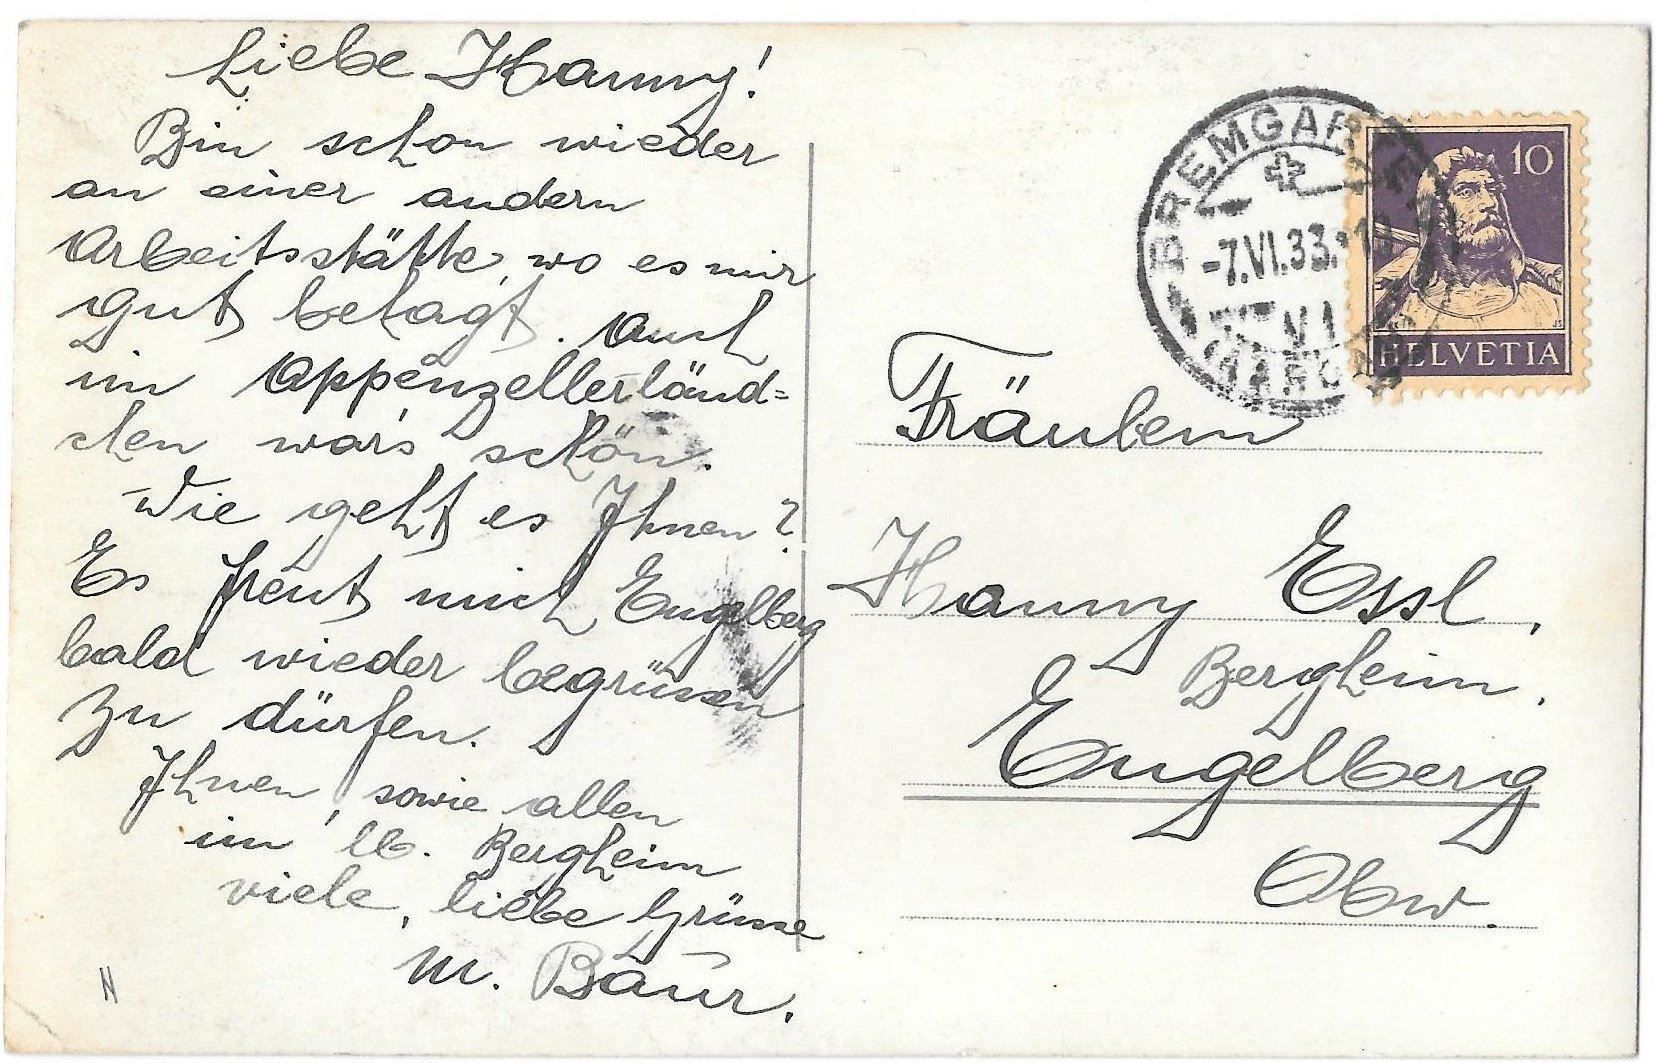 Liebe Hanny!
Bin schon wieder
an einer andern
Arbeitsstätte, wo es mir
gut behagt. Auch
im Appenzellerländ=
chen war's schön.
Wie geht es Ihnen?
Es freut mich Engelberg
bald wieder begrüssen
zu dürfen.
Ihnen, sowie allen
im lb. Bergheim
viele, liebe Grüsse
M. Baur.
N
BREMGARTEN
-7.VI.33.
(AARGAU)
10
HELVETIA
Fräulein
Hanny Essl,
Bergheim,
Engelberg
Obw.